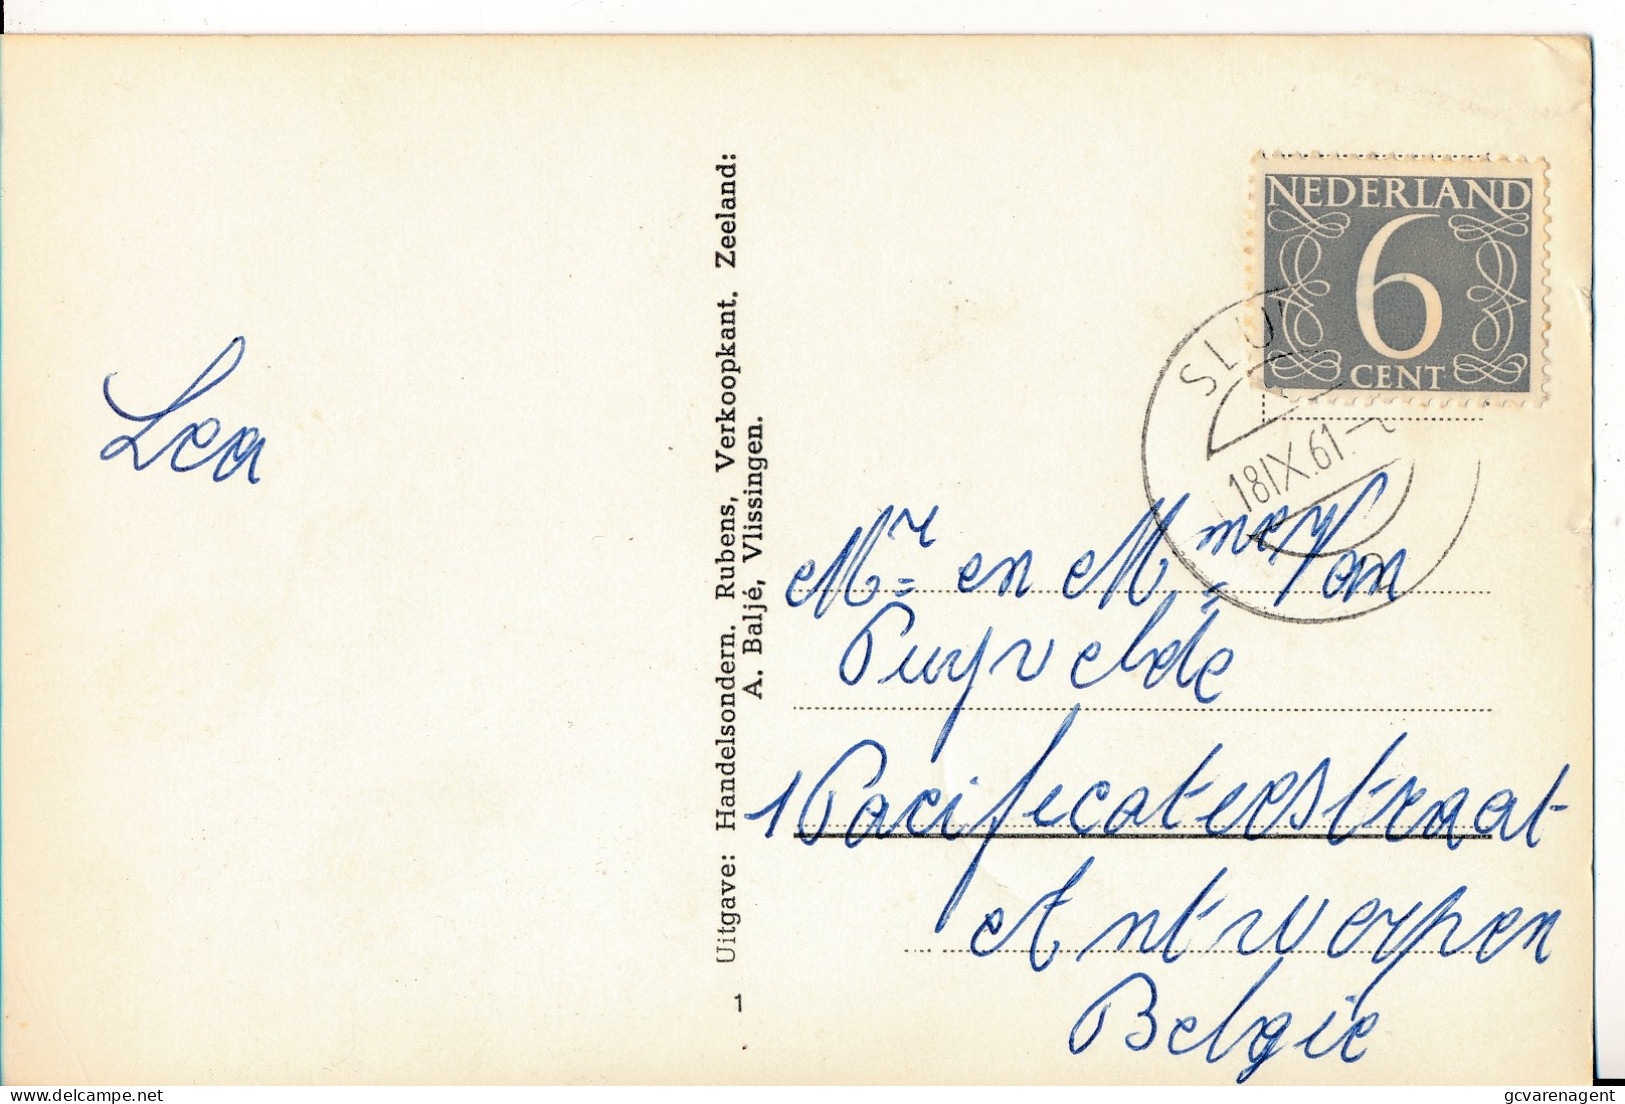 NEDERLAND
6
CENT
SLUI
18 IX.61.
Lea
Mr en Mme Van
Puyvelde
1 Pacificatiestraat
Antwerpen
Belgie
Uitgave: Handelsondern. Rubens, Verkoopkant. Zeeland:
A. Baljé, Vlissingen.
1
delcampe.net
gcvarenagent